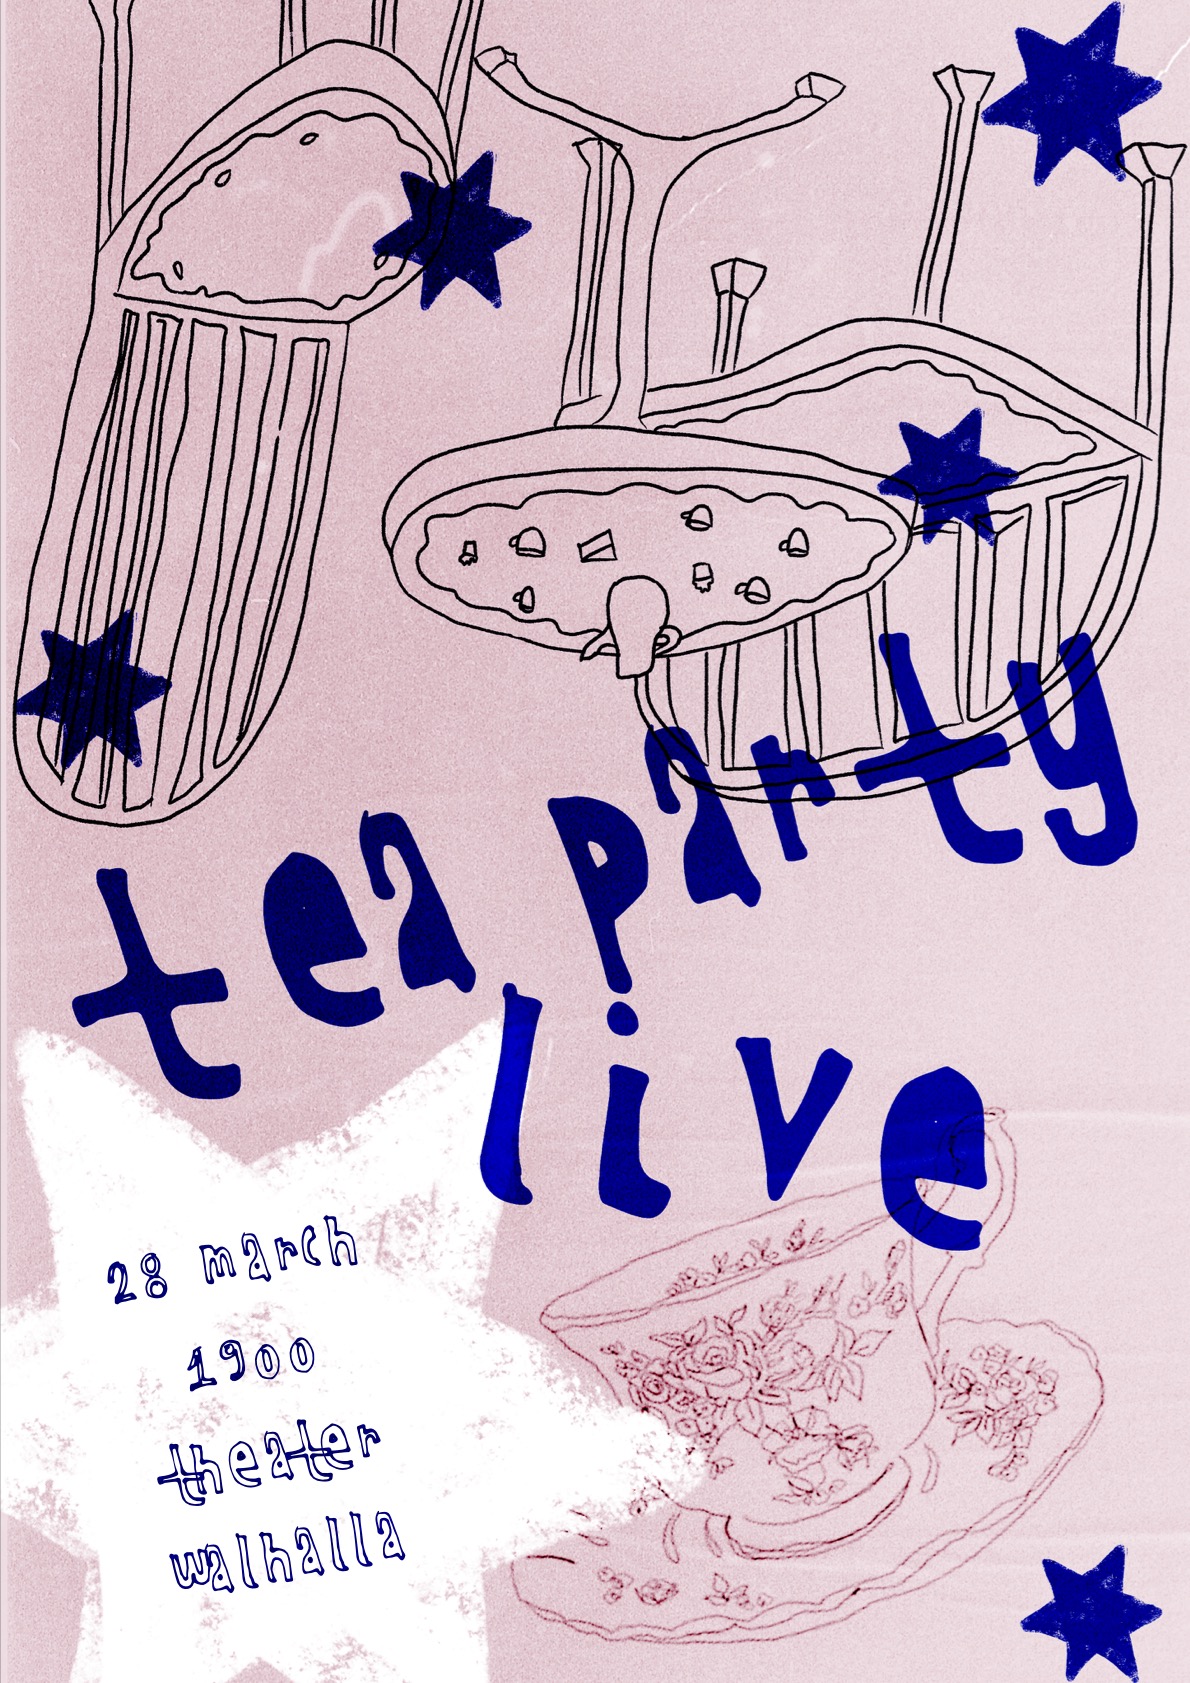 tea party
live
28 march
1900
theater
walhalla